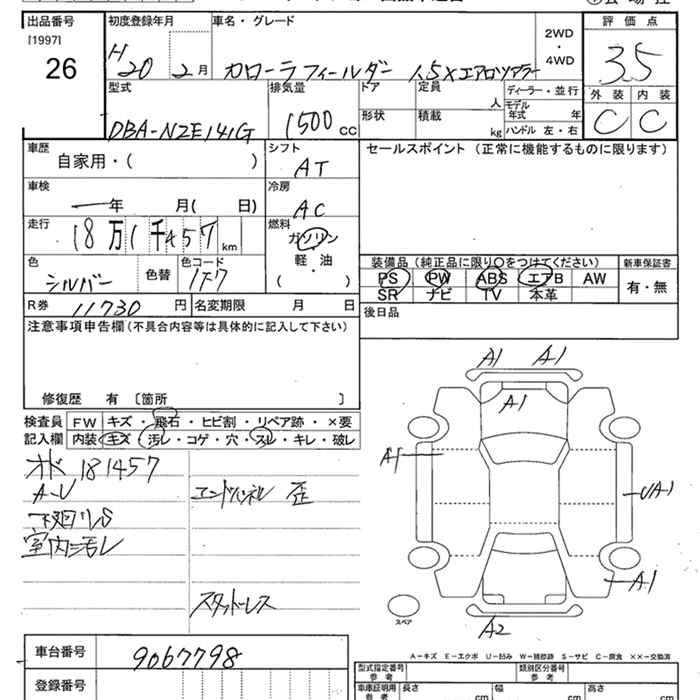 出品番号
[1997]
26
初度登録年月
H20 2月
車名・グレード
カローラフィールダー 1.5Xエアロツアラー
2WD
・
4WD
評価点
3.5
外装 内装
C C
型式
DBA-NZE141G
排気量
1500 cc
ドア
定員
人
ディーラー・並行
モデル
年式 年
形状
積載
kg
ハンドル 左・右
車歴
自家用・( )
シフト
AT
セールスポイント (正常に機能するものに限ります)
車検
年 月( 日)
冷房
AC
走行
18万1千457 km
燃料
ガソリン
軽・油
( )
色
シルバー
色替
色コード
1F7
装備品 (純正品に限り○をつけてください)
PS PW ABS エアB AW
SR ナビ TV 本革
新車保証書
有・無
R券 11730 円
名変期限 月 日
後日品
注意事項申告欄 (不具合内容等は具体的に記入して下さい)
修復歴 有 〔箇所 〕
検査員
記入欄
FW キズ・飛石・ヒビ割・リペア跡・×要
内装 キズ・汚レ・コゲ・穴・スレ・キレ・破レ
オド 181457
A-U
エンドパネル 歪
下廻リS
室内汚レ
スタッドレス
A1 A1
A1
A1
UA1
A1
A2
スペア
A-キズ E-エクボ U-凹み W-補修跡 S-サビ C-腐食 ××-交換済
車台番号
9067798
登録番号
型式指定番号
参考
類別区分番号
参考
車庫証明用
参考
長さ cm
幅 cm
高さ cm